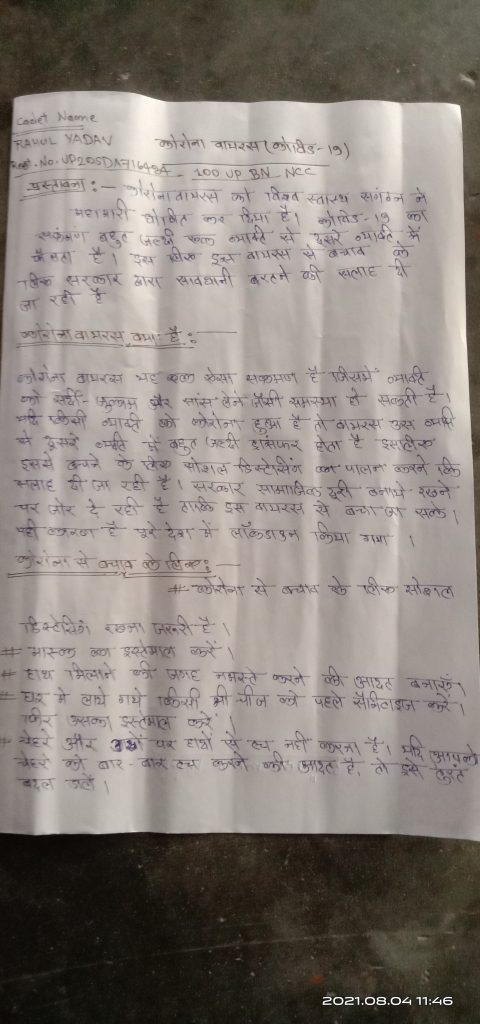 Cadet Name
RAHUL YADAV
कोरोना वायरस (कोविड-19)
Regt. No. UP20SDA716484 - 100 UP BN NCC
प्रस्तावना :- कोरोना वायरस को विश्व स्वास्थ संगठन ने
महामारी घोषित कर दिया है। कोविड-19 का
संक्रमण बहुत जल्दी एक व्यक्ति से दूसरे व्यक्ति में
फैलता है। इस लिए इस वायरस से बचाव के
लिए सरकार द्वारा सावधानी बरतने की सलाह दी
जा रही है
कोरोना वायरस क्या है :-
कोरोना वायरस यह एक ऐसा संक्रमण है जिसमें व्यक्ति
को सर्दी जुकाम और सांस लेने जैसी समस्या हो सकती है।
यदि किसी व्यक्ति को कोरोना हुआ है तो वायरस उस व्यक्ति
से दूसरे व्यक्ति में बहुत जल्दी ट्रांसफर होता है इसलिए
इससे बचने के लिए सोशल डिस्टेसिंग का पालन करने कि
सलाह दी जा रही है। सरकार सामाजिक दूरी बनाये रखने
पर जोर दे रही है ताकि इस वायरस से बचा जा सके।
यही कारण है पूरे देश में लॉकडाउन किया गया।
कोरोना से बचाव के लिए :-
# कोरोना से बचाव के लिए सोशल
डिस्टेसिंग रखना जरूरी है।
# मास्क का इस्तेमाल करें।
# हाथ मिलाने की जगह नमस्ते करने की आदत बनाएं।
# घर में लाये गये किसी भी चीज को पहले सैनिटाइज करें।
फिर उसका इस्तेमाल करें।
# चेहरे और पर हाथों से टच नहीं करना है। यदि आपको
चेहरे को बार-बार टच करने की आदत है, तो इसे तुरंत
बदल डालें।
2021.08.04 11:46